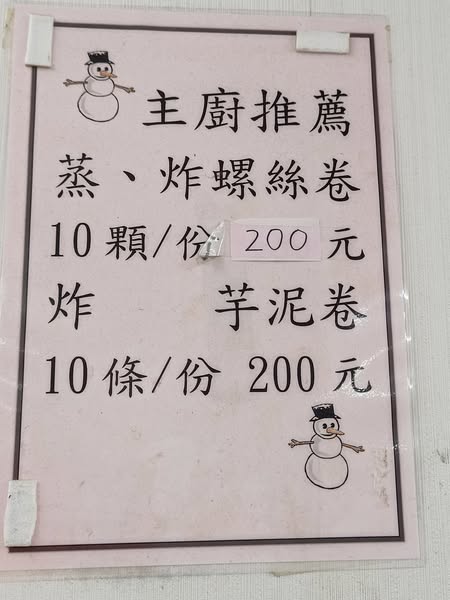 主廚推薦
蒸、炸螺絲卷
10顆/份 200元
炸 芋泥卷
10條/份 200元